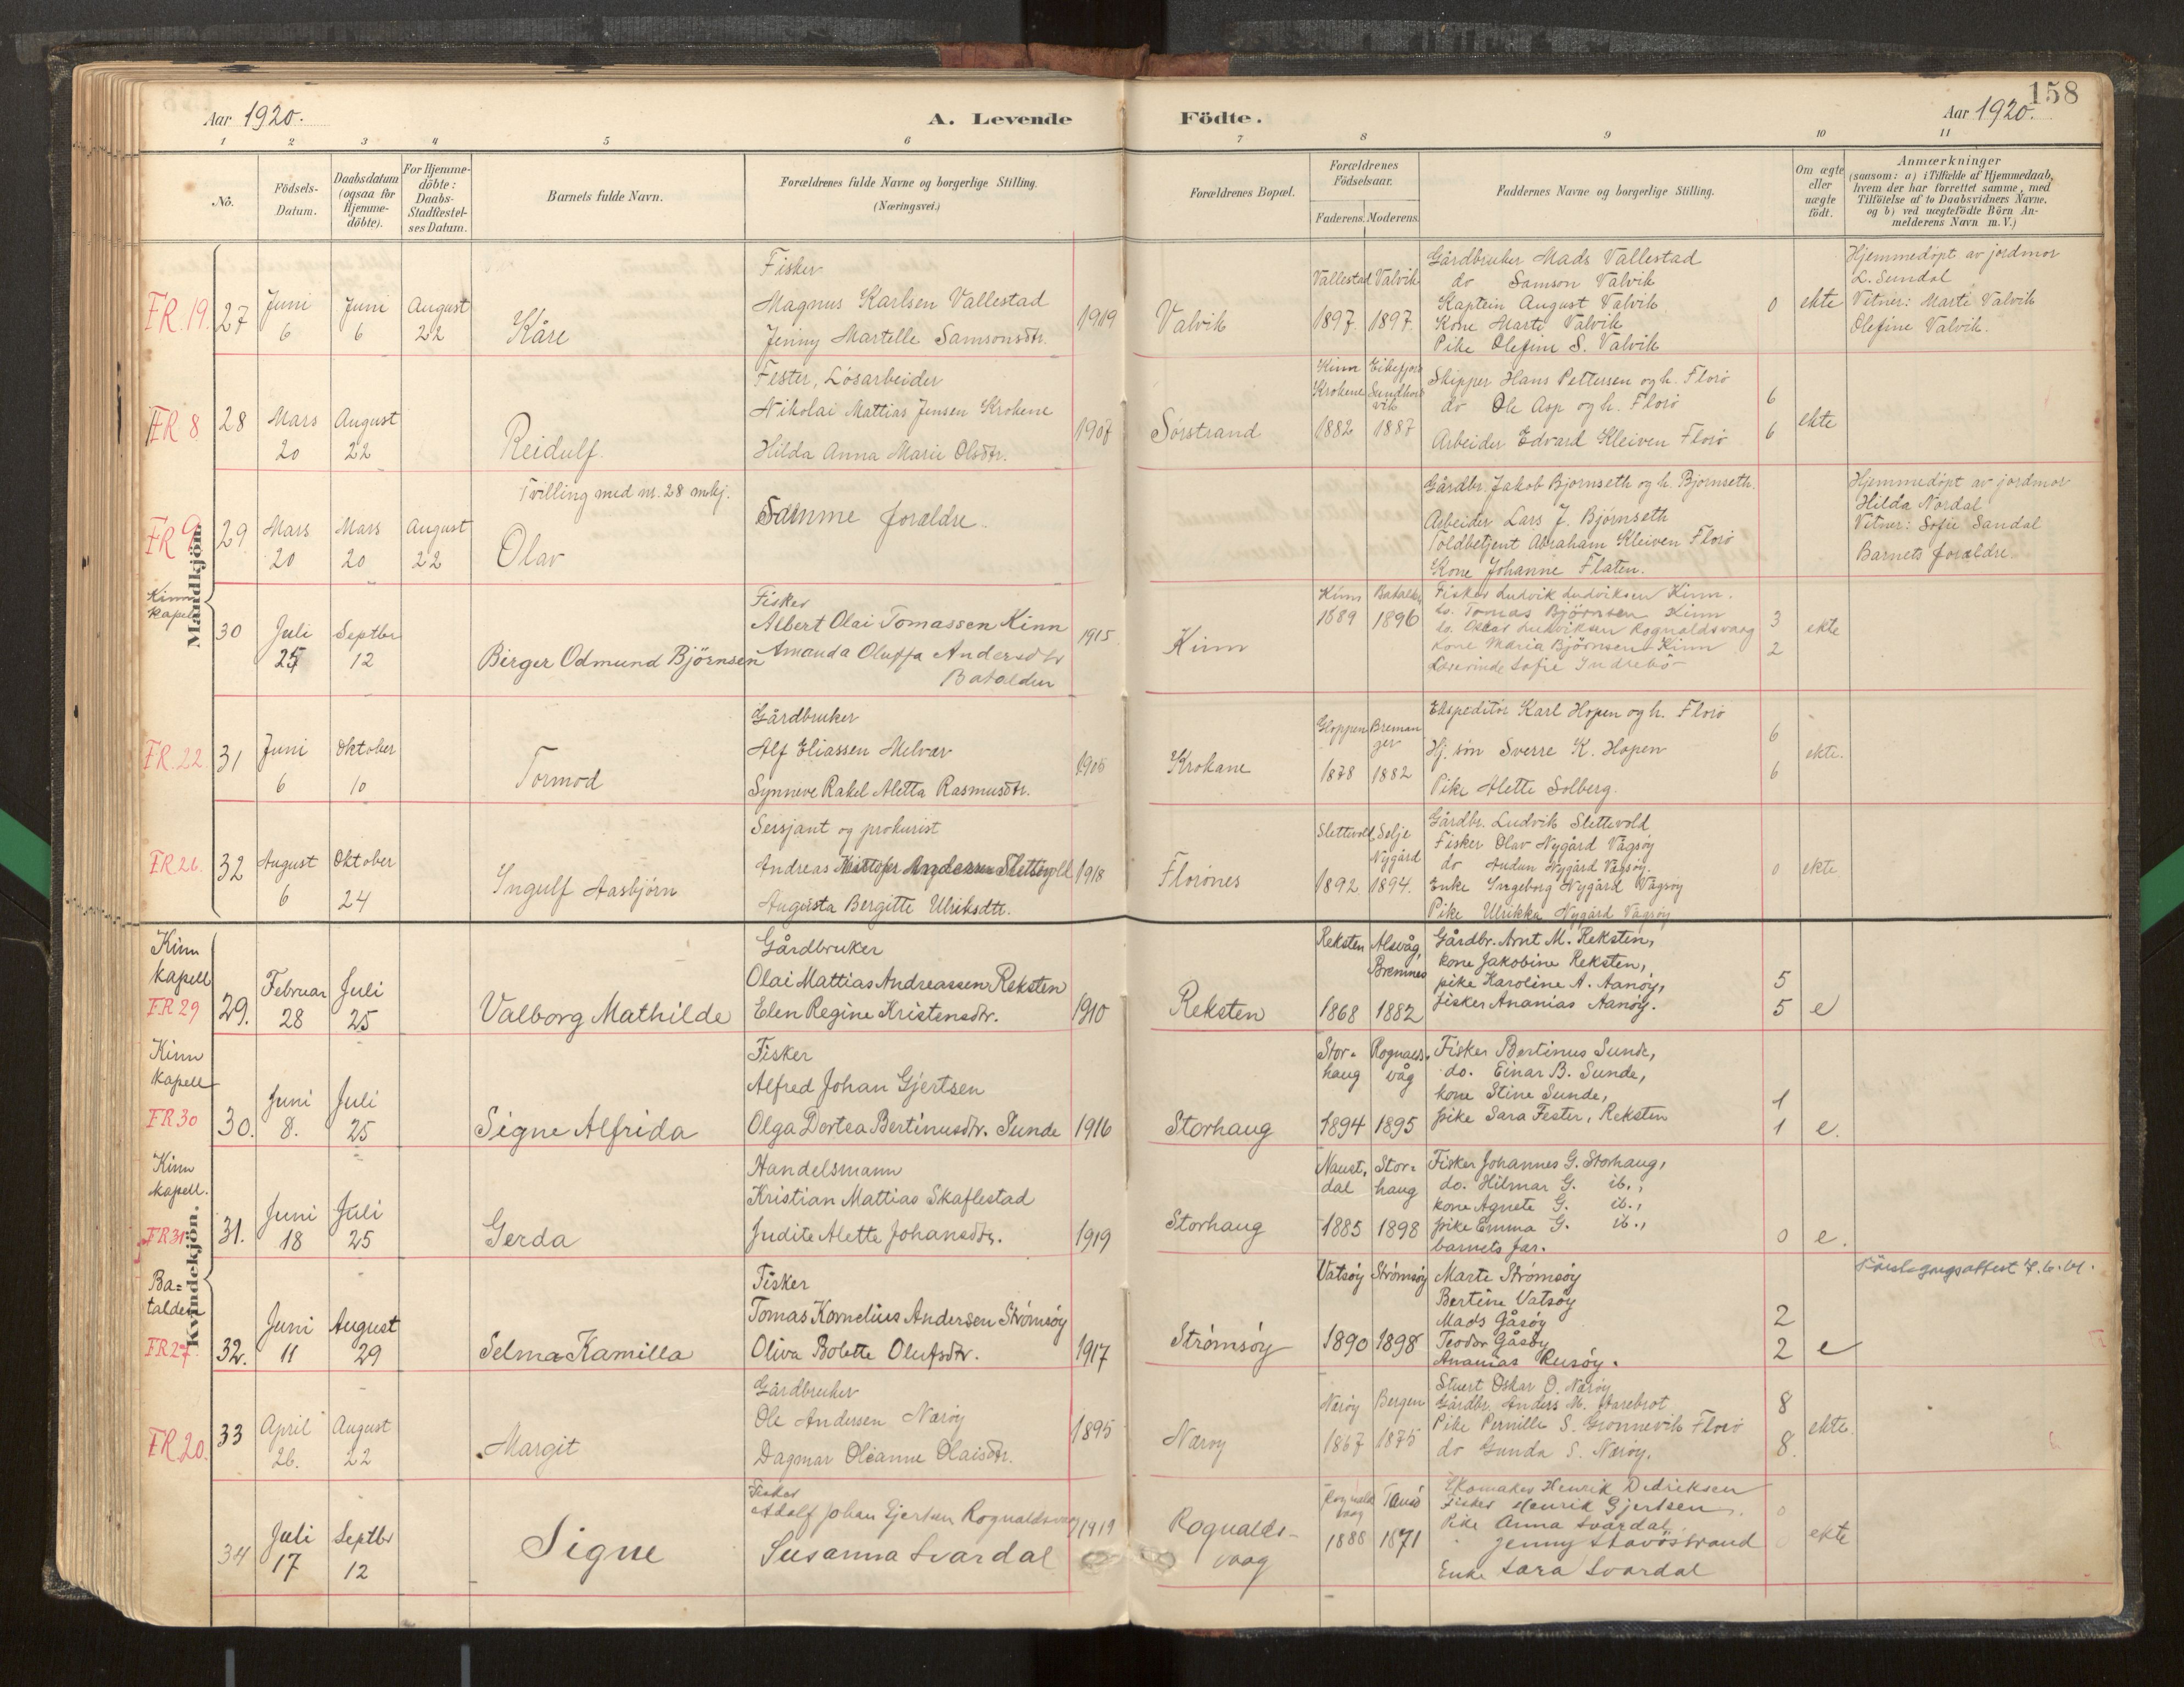 158
Aar 1920.
A. Levende
Födte.
Aar 1920.
1 2 3 4 5 6 7 8 9 10 11
No.
Födsels-Datum.
Daabsdatum (ogsaa for Hjemme-döbte).
For Hjemme-döbte: Daabs-Stadfæstel-ses Datum.
Barnets fulde Navn.
Forældrenes fulde Navne og borgerlige Stilling.
(Næringsvei.)
Forældrenes Bopæl.
Forældrenes Födselsaar.
Faderens. Moderens.
Faddernes Navne og borgerlige Stilling.
Om ægte eller uægte födt.
Anmærkninger
(saasom: a) i Tilfælde af Hjemmedaab, hvem der har forrettet samme, med Tilföielse af to Daabsvidners Navne, og b) ved uægtefödte Börn An-melderens Navn m.V.)
Mandkjön
FR. 19. 27 Juni 6 Juni 6 August 22
Kåre
Fisker
Magnus Karlsen Vallestad
Jenny Martelle Samsonsdtr.
1919
Valvik
Vallestad Valvik
1897. 1897.
Gårdbruker Mads Vallestad
do Samson Valvik
Kaptein August Valvik
Kone Marti Valvik
Pike Olefine S. Valvik
0
ekte
Hjemmedöpt av jordmor
L. Sundal
Vitner: Marti Valvik
Olefine Valvik.
FR 8 28 Mars 20 August 22
Reidulf.
Fester, Lösarbeider
Nikolai Mattias Jensen Krokene
Hilda Anna Marie Olsdtr.
1907
Sörstrand
Kinn Eikefjord
Krokene
1882 1887
Skipper Hans Pettersen og h. Florö
do Ole Asp og h. Florö
Arbeider Edvard Kleiven Florö
6
6
ekte
FR 9 29 Mars 20 Mars 20 August 22
Tvilling med nr. 28 mkj.
Olav
Samme forældre
Gårdbr. Jakob Björnseth og h. Björnseth.
Arbeider Lars J. Björnseth
Toldbetjent Abraham Kleiven Florö
Kone Johanne Flaten.
Hjemmedöpt av jordmor
Hilda Nordal
Vitner: Sofie Sandal
Barnets forældre
Kinn kapel
30 Juli 25 Septbr 12
Birger Odmund Björnsen
Fisker
Albert Olai Tomassen Kinn
Amanda Oluffa Andersdtr
Batalden
1915
Kinn
Kinn Batalden
1889 1896
Fisker Ludvik Ludviksen Kinn.
do. Tomas Björnsen Kinn
do. Oskar Ludviksen Rognaldsvaag
Kone Maria Björnsen Kinn
Lærerinde Sofie Indrebö
3
2
ekte
FR. 22. 31 Juni 6 Oktober 10
Tormod
Gårdbruker
Alf Eliassen Melvær
Synneve Rakel Aletta Rasmusdtr.
1905
Krokane
Gloppen Bremanger
1878 1882
Ekspeditör Karl Hopen og h. Florö
Hj. sön Sverre K. Hopen
Pike Alette Solberg.
6
6
ekte.
FR 26. 32 August 6 Oktober 24
Ingulf Aasbjörn
Sersjant og prokurist
Andreas Kristofer Andersen Slettevold
Augusta Bergitte Ulriksdtr.
1918
Florönes
Slettevold Selje
Nygård
1892 1894.
Gårdbr. Ludvik Slettevold
Fisker Olav Nygård Vågsöy
do Audun Nygård Vågsöy.
Enke Ingeborg Nygård Vågsöy
Pike Ulrikka Nygård Vågsöy
0
ekte
Kvindekjön.
Kinn kapell
FR 29 29. Februar 28 Juli 25
Valborg Mathilde
Gårdbruker
Olai Mattias Andreassen Reksten
Elen Regine Kristensdtr.
1910
Reksten
Reksten Alsvåg, Bremnes
1868 1882
Gårdbr. Arnt M. Reksten,
kone Jakobine Reksten,
pike Karoline A. Aanöy,
fisker Ananias Aanöy.
5
5
e
Kinn kapell
FR 30 30. Juni 8. Juli 25
Signe Alfrida
Fisker
Alfred Johan Gjertsen
Olga Dortea Bertinusdtr. Sunde
1916
Storhaug
Storhaug Rognaldsvåg
1894 1895
Fisker Bertinus Sunde,
do. Einar B. Sunde,
kone Stine Sunde,
pike Sara Fester, Reksten
1
1
e.
Kinn kapell.
FR 31 31. Juni 18 Juli 25
Gerda
Handelsmann
Kristian Mattias Skaflestad
Judite Alette Johansdtr.
1919
Storhaug
Naustdal Storhaug
1885 1898
Fisker Johannes G. Storhaug,
do. Hilmar G. ib.,
kone Agnete G. ib.,
pike Emma G. ib.,
barnets far.
0
e.
Batalden
FR 27 32. Juni 11 August 29
Selma Kamilla
Fisker
Tomas Kornelius Andersen Strömsöy
Oliva Bolette Olufsdtr.
1917
Strömsöy
Vatsöy Strömsöy
1890 1898
Marte Strömsöy
Bertine Vatsöy
Mads Gåsöy
Teodor Gåsöy
Ananias Rusöy.
2
2
e
FR. 20. 33 April 26. August 22
Margit
Gårdbruker
Ole Andersen Naröy
Dagmar Oleanne Olaisdtr.
1895
Naröy
Naröy Bergen
1867 1875
Stuert Oskar O. Naröy
Gårdbr. Anders M. Starebrot
Pike Pernille S. Grönnevik Florö
do Gunda S. Naröy.
8
8.
ekte.
34 Juli 17 Septbr 12
Signe
Fisker
Adolf Johan Gjertsen Rognaldsvaag
Susanna Svardal
1919
Rognalds-
vaag
Rognaldsvaag
1888 1871
Skomaker Henrik Dedriksen
Fisker Henrik Gjertsen
Pike Anna Svardal
" Jenny Stavöstrand
Enke Sara Svardal
0
0
ekte